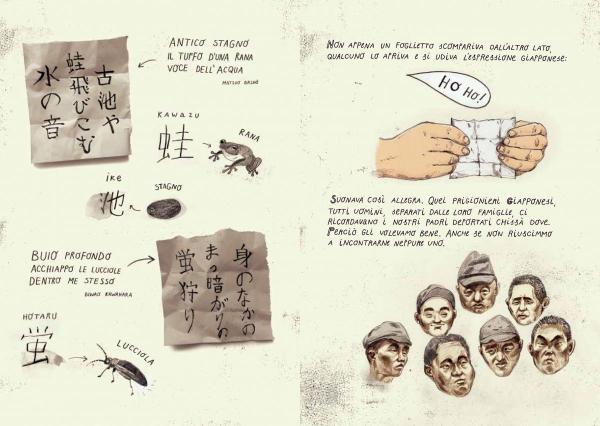 古池や
蛙飛びこむ
水の音
ANTICO STAGNO
IL TUFFO D'UNA RANA
VOCE DELL'ACQUA
MATSUO BASHO
KAWAZU
蛙
RANA
IKE
池
STAGNO
BUIO PROFONDO
ACCHIAPPO LE LUCCIOLE
DENTRO ME STESSO
BIWAO KAWAHARA
身のなかの
まっ暗がりの
蛍狩り
HOTARU
蛍
LUCCIOLA
NON APPENA UN FOGLIETTO SCOMPARIVA DALL'ALTRO LATO,
QUALCUNO LO APRIVA E SI UDIVA L'ESPRESSIONE GIAPPONESE:
HO HO!
SUONAVA COSÌ ALLEGRA. QUEI PRIGIONIERI GIAPPONESI,
TUTTI UOMINI, SEPARATI DALLE LORO FAMIGLIE, CI
RICORDAVANO I NOSTRI PADRI DEPORTATI CHISSÀ DOVE.
PERCIÒ GLI VOLEVAMO BENE. ANCHE SE NON RIUSCIMMO
A INCONTRARNE NEPPURE UNO.